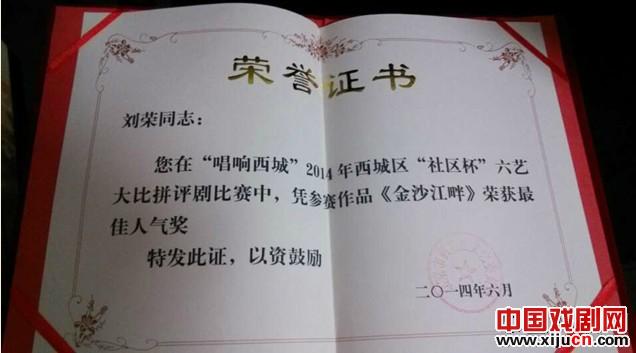 荣誉证书
刘荣同志：
您在“唱响西城”2014年西城区“社区杯”六艺
大比拼评剧比赛中，凭参赛作品《金沙江畔》荣获最
佳人气奖
特发此证，以资鼓励
二〇一四年六月
中国戏剧网
www.xijucn.com